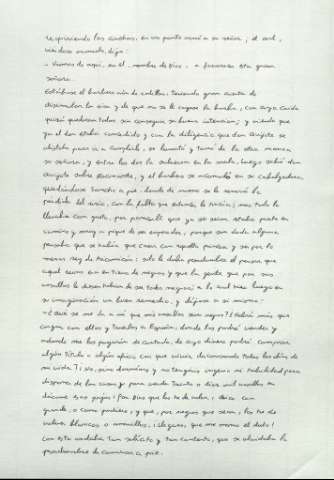 las cinchas, en un punto armó a su señor, el cual,
viéndose armado, dijo:
- Vamos de aquí, en el nombre de Dios, a favorecer esta gran
señora.
Estábase el barbero aún de rodillas, teniendo gran cuenta de
disimular la risa y de que no se le cayese la barba, con cuya caída
quizá quedaran todos sin conseguir su buena intención; y viendo que
ya el don estaba concedido y con la diligencia que don Quijote se
alistaba para ir a cumplirle, se levantó y tomó de la otra mano a
su señora, y entre los dos la subieron en la mula. Luego subió don
Quijote sobre Rocinante, y el barbero se acomodó en su cabalgadura,
quedándose Sancho a pie, donde de nuevo se le renovó la
pérdida del rucio, con la falta que entonces le hacía; mas todo lo
llevaba con gusto, por parecerle que ya su señor estaba puesto en
camino y muy a pique de ser emperador, porque sin duda alguna
pensaba que se había de casar con aquella princesa y ser por lo
menos rey de Micomicón: solo le daba pesadumbre el pensar que
aquel reino era en tierra de negros y que la gente que por sus
vasallos le diesen habían de ser todos negros; a lo cual hizo luego en
su imaginación un buen remedio, y díjose a sí mismo:
- ¿Qué se me da a mí que mis vasallos sean negros? ¿Habrá más que
cargar con ellos y traerlos a España, donde los podré vender y
adonde me los pagarán de contado, de cuyo dinero podré comprar
algún título o algún oficio con que vivir descansado todos los días de
mi vida? ¡No, sino dormíos y no tengáis ingenio ni habilidad para
disponer de las cosas y para vender treinta o diez mil vasallos en
dácame esas pajas! Par Dios que los he de volar, chico con
grande, o como pudiere, y que, por negros que sean, los he de
volver blancos o amarillos. ¡Llegaos, que me mamo el dedo!
Con esto andaba tan solícito y tan contento, que se olvidaba la
pesadumbre de caminar a pie.